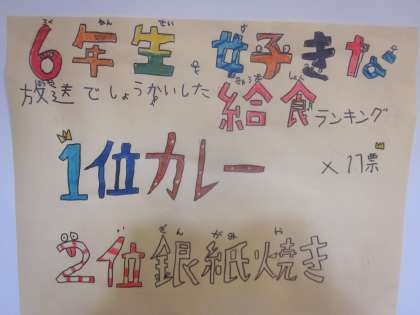 6年生の好きな
放送でしょうかいした給食ランキング
1位カレー ×17票
2位銀紙焼き